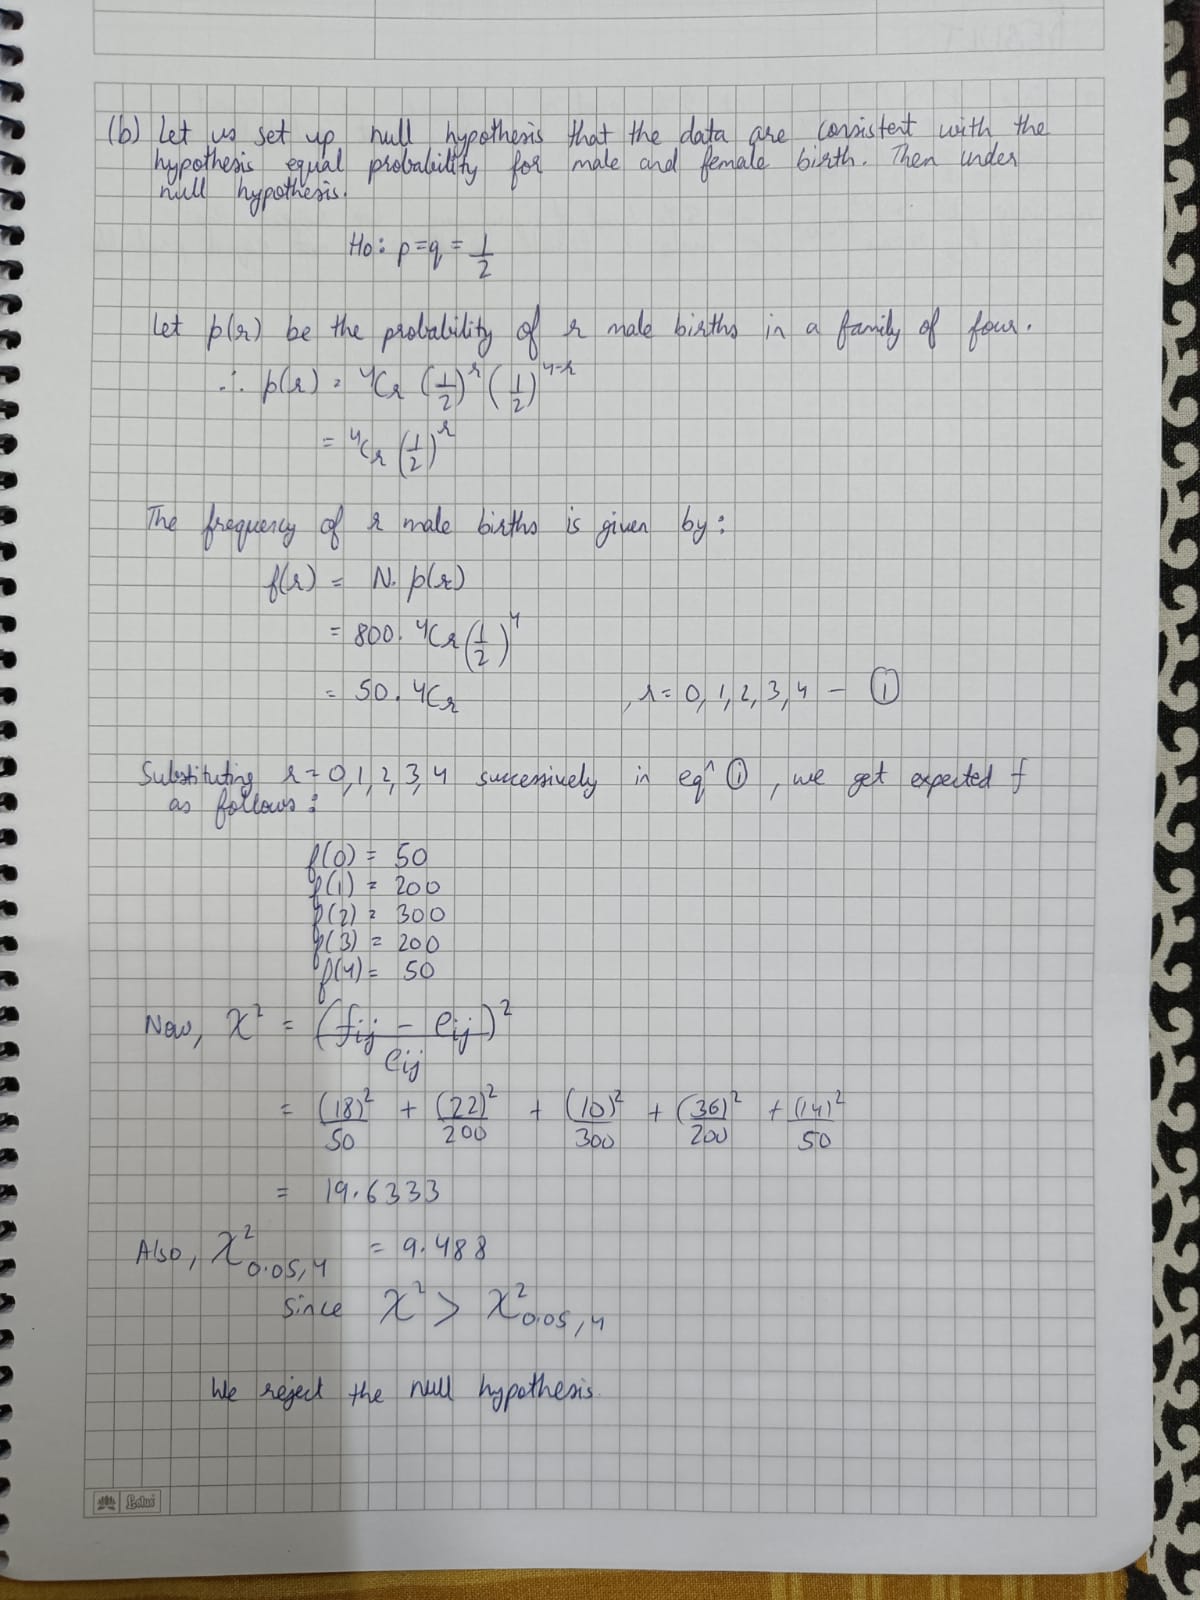 (b) Let us set up null hypothesis that the data are consistent with the
hypothesis equal probability for male and female birth. Then under
null hypothesis.
Ho: p=q = 1/2
Let p(r) be the probability of r male births in a family of four.
∴ p(r) = ⁴Cr (1/2)^r (1/2)^4-r
= ⁴Cr (1/2)^r
The frequency of r male births is given by:
f(r) = N. p(r)
= 800. ⁴Cr (1/2)^4
= 50. 4Cr , r = 0, 1, 2, 3, 4 - ①
Substituting r = 0, 1, 2, 3, 4 successively in eqⁿ ①, we get expected f
as follows:
f(0) = 50
f(1) = 200
f(2) = 300
f(3) = 200
f(4) = 50
Now, χ² = (fij - eij)² / eij
= (18)²/50 + (22)²/200 + (10)²/300 + (36)²/200 + (14)²/50
= 19.6333
Also, χ²0.05,4 = 9.488
Since χ² > χ²0.05,4
We reject the null hypothesis.
Lotus